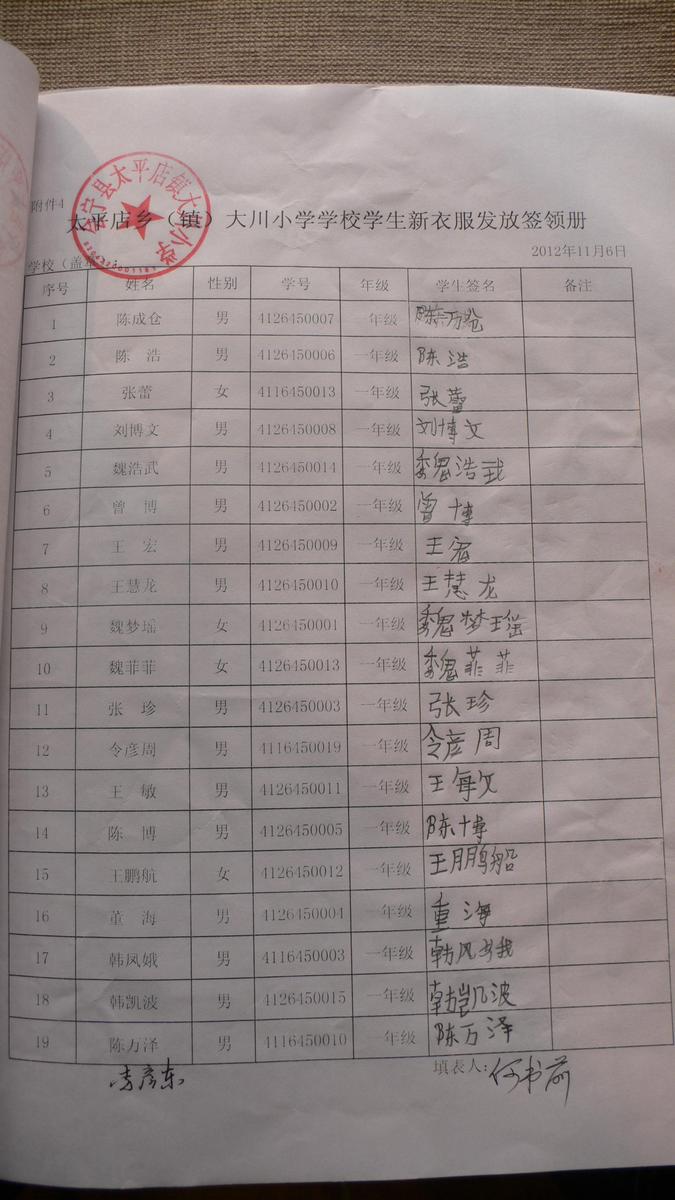 附件4
太平店乡（镇）大川小学学校学生新衣服发放签领册
学校（盖章）：
2012年11月6日
序号 姓名 性别 学号 年级 学生签名 备注
1 陈成仓 男 4126450007 一年级 陈万沧
2 陈 浩 男 4126450006 一年级 陈浩
3 张蕾 女 4116450013 一年级 张蕾
4 刘博文 男 4126450008 一年级 刘博文
5 魏浩武 男 4126450014 一年级 魏浩武
6 曾 博 男 4126450002 一年级 曾博
7 王 宏 男 4126450009 一年级 王宏
8 王慧龙 男 4126450010 一年级 王慧龙
9 魏梦瑶 女 4126450001 一年级 魏梦瑶
10 魏菲菲 女 4126450013 一年级 魏菲菲
11 张 珍 男 4126450003 一年级 张珍
12 令彦周 男 4116450019 一年级 令彦周
13 王 敏 男 4126450011 一年级 王敏
14 陈 博 男 4126450005 一年级 陈博
15 王鹏航 女 4126450012 一年级 王鹏船
16 董 海 男 4126450004 一年级 重海
17 韩凤娥 男 4116450003 一年级 韩风娥
18 韩凯波 男 4126450015 一年级 韩凯波
19 陈万泽 男 4116450010 一年级 陈万泽
李彦东 填表人：何书前